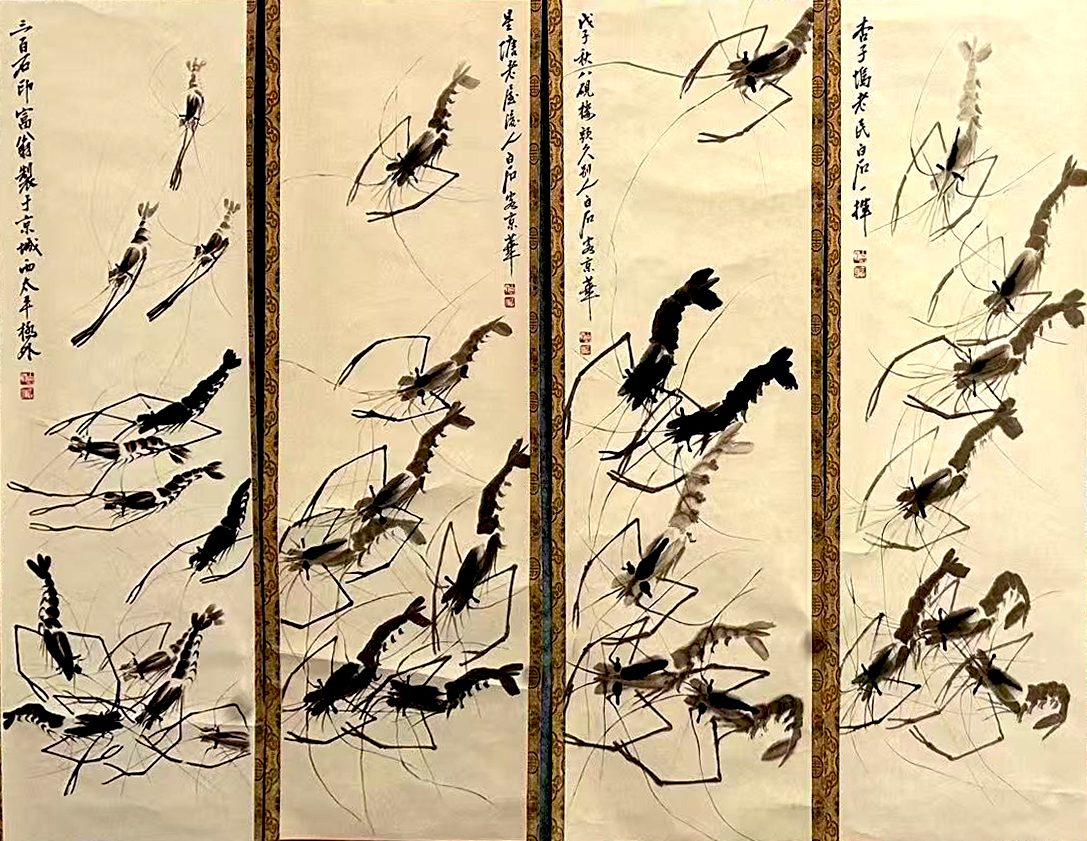 杏子塢老民白石一揮
戊子秋八硯樓頭久別人白石客京華
星塘老屋後人白石客京華
三百石印富翁製于京城西太平橋外